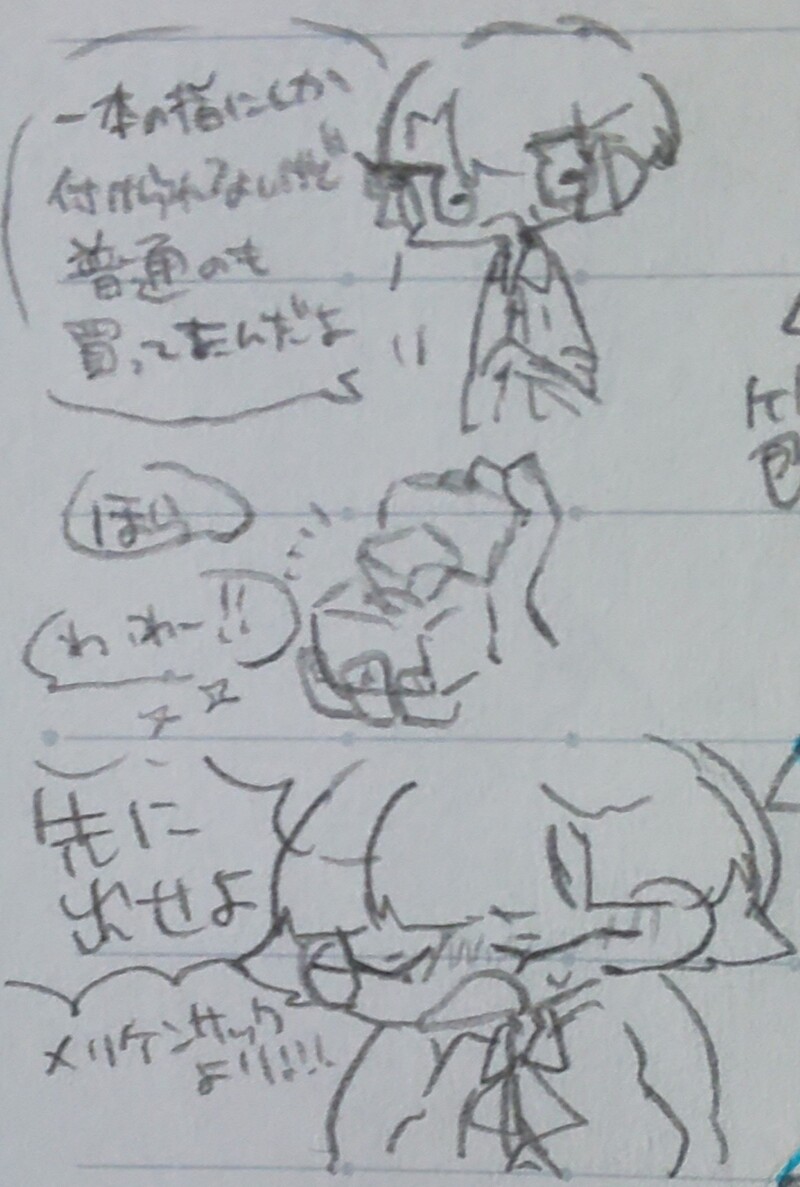 一本の指にしか
付けられないけど
普通のも
買ってあんだよ
ほら
わ わー!!
先に
出せよ
メリケンサック
より!!!!